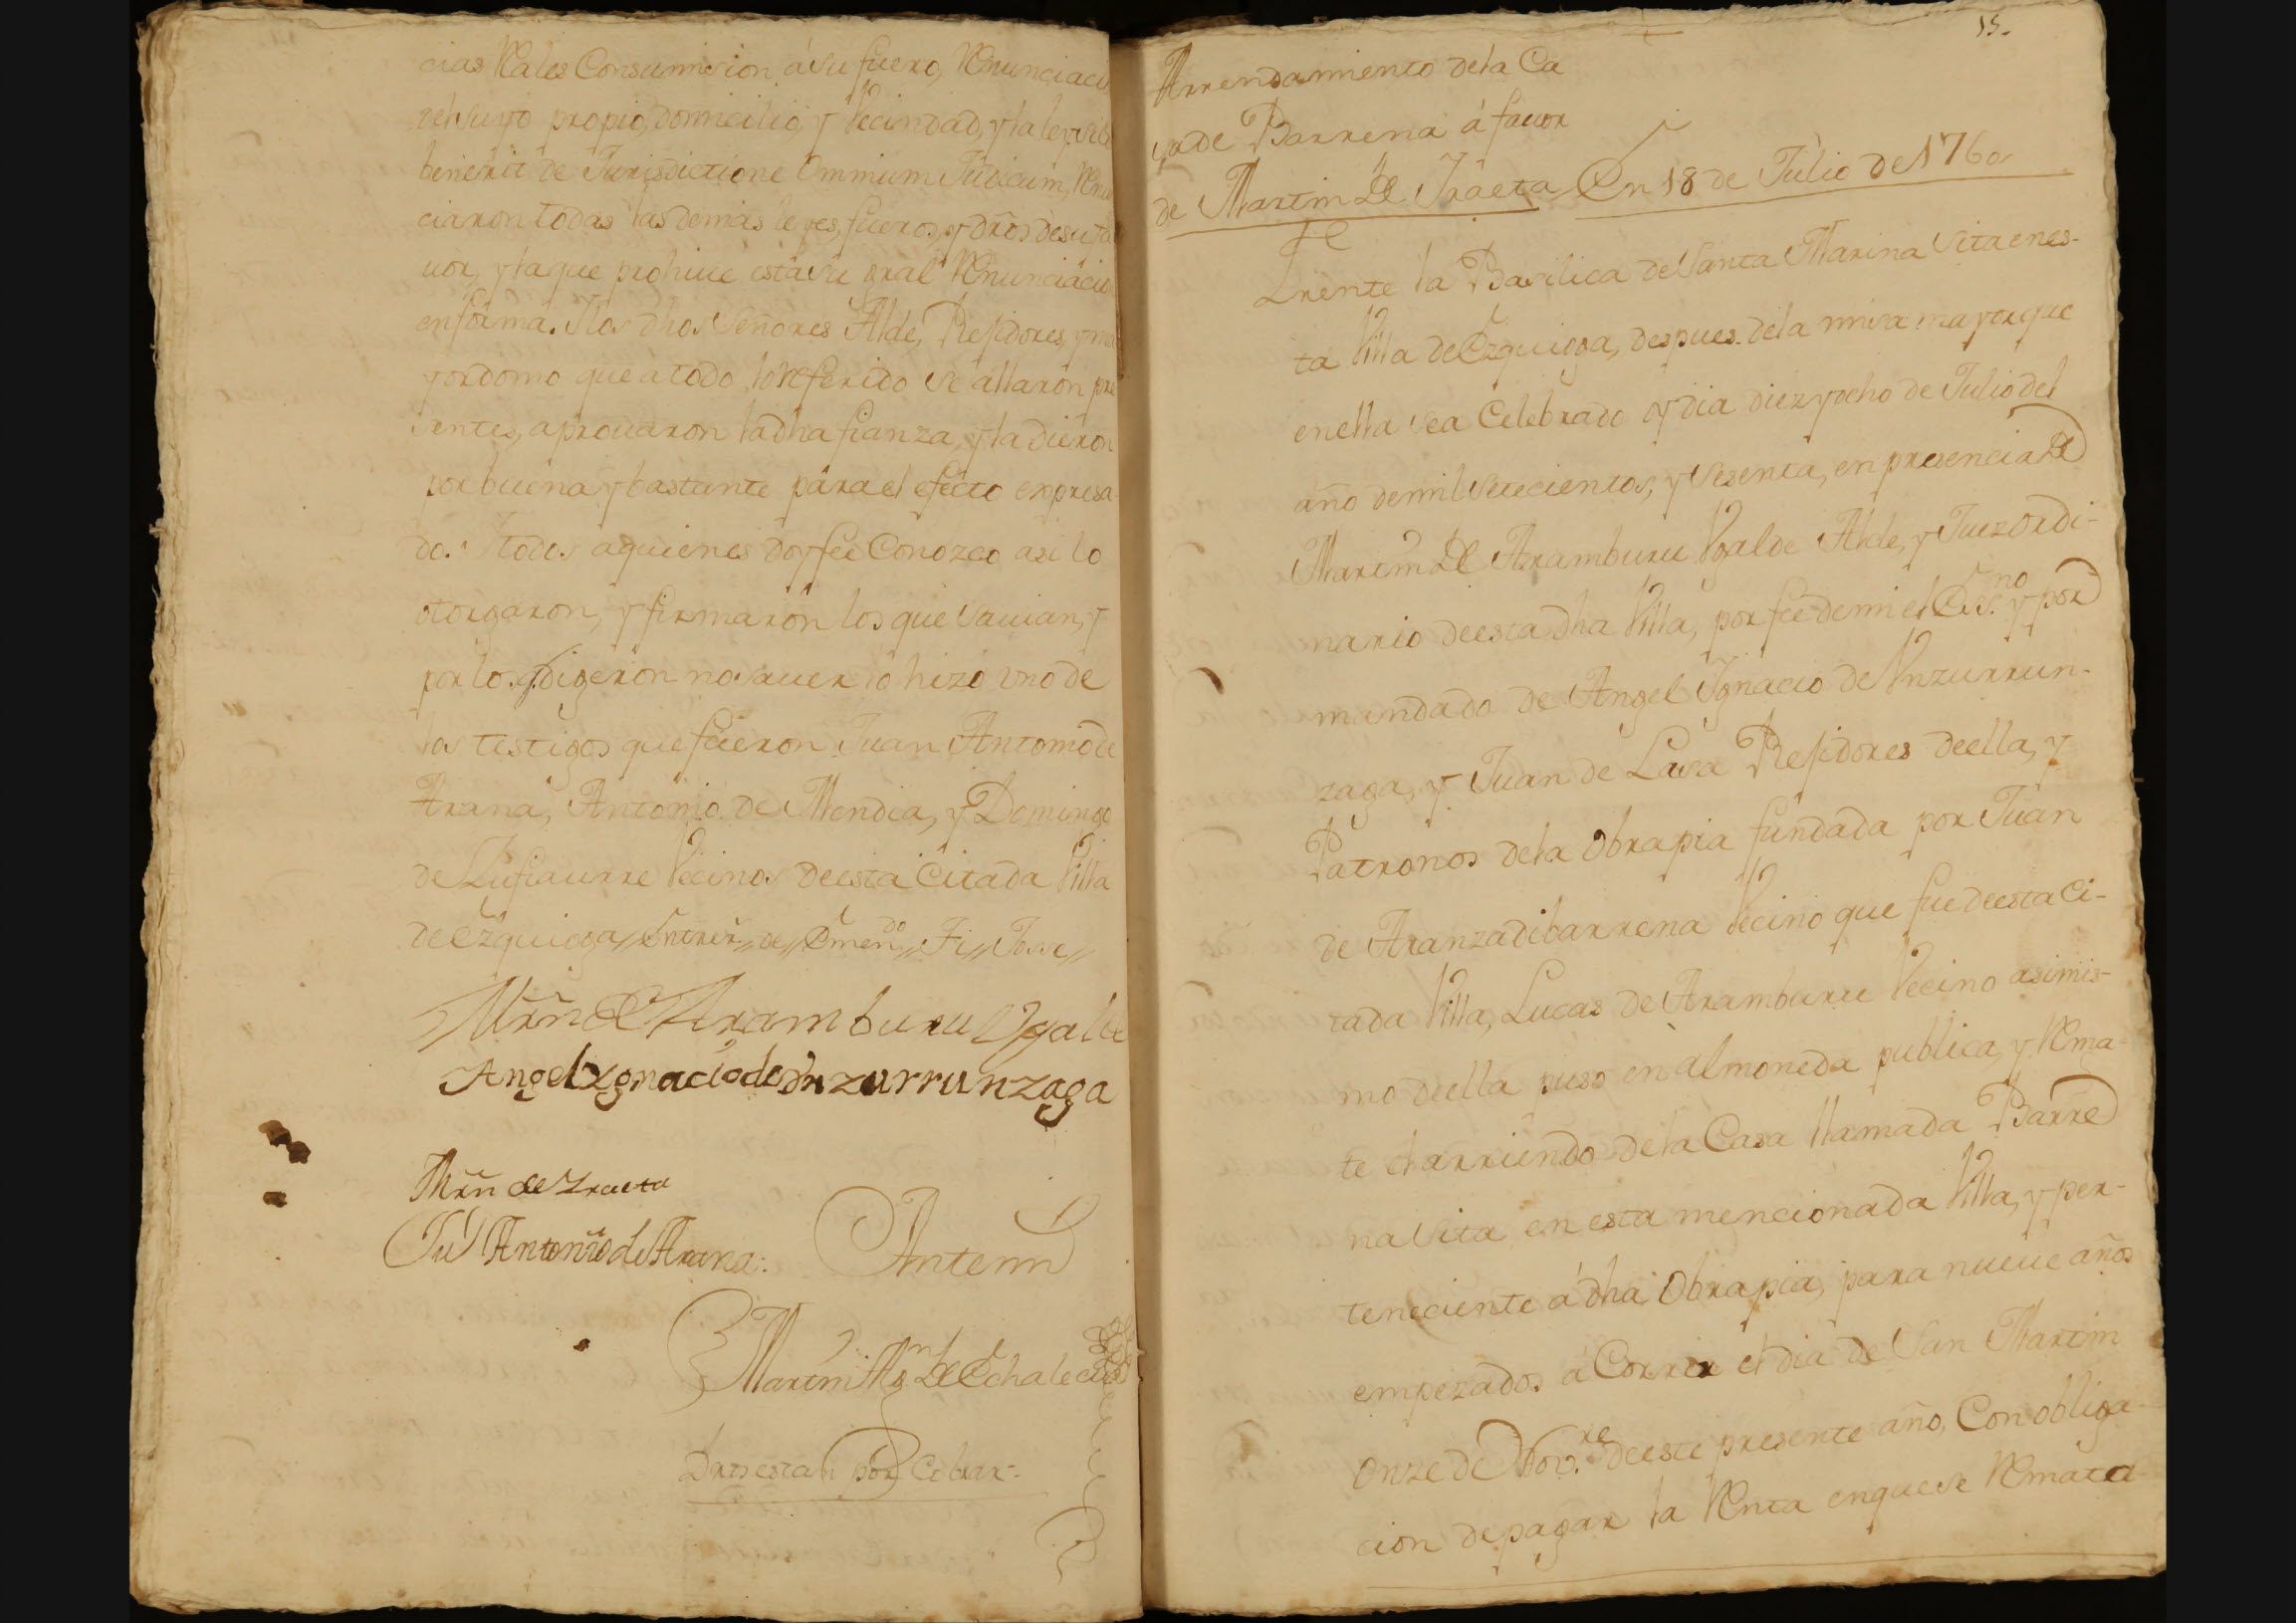 cias Rales Consumision á su fuero, Renunciacio
del suyo propio, domicilio, y Vecindad, y la ley si con
benerit de Jurisdictione Omnium Judicum, Renun
ciaron todas las demas leyes, fueros, y dros de su fa
uor, y la que prohiue esta su gral Renunciacion
en forma. Y los dhos Señores Alde, Rejidores, y ma
yordomo que a todo lo Referido se allaron pre
sentes, aprouaron la dha fianza, y la dieron
por buena y bastante para el efecto expresa
do. Y todos a quienes doy fee Conozco asi lo
otorgaron, y firmaron los que sauian, y
por los q. digeron no sauer lo hizo vno de
los testigos que fueron Juan Antonio de
Arana, Antonio de Mendia, y Domingo
de Zufiaurre Vecinos de esta Citada Villa
de Ezquioga // Entrerr // de // Emendo // Fi //
Mrñ de Aramburu Vgalde
Angel Ygnacio de Vnzurrunzaga
Mrñ de Yraeta
Ju Antonio de Arana:
Antemi
Martin Mn de Echalecu
Dros estan por Cobrar:
15.
Arrendamiento de la Ca
sa de Barrena á fauor
de Martin de Yraeta En 18 de Julio de 1760
Frente la Basilica de Santa Marina sita en es-
ta Villa de Ezquioga, despues de la misa mayor que
en ella se a Celebrado oy dia diez y ocho de Julio del
año de mil setecientos, y sesenta, en presencia de
Martin de Aramburu Vgalde Alde, y Juez Ordi-
nario de esta dha Villa, por fee de mi el Essno y por
mandado de Angel Ygnacio de Vnzurrun-
zaga, y Juan de Lasa Rejidores de ella, y
Patronos de la Obrapia fundada por Juan
de Aranzadibarrena Vecino que fue de esta Ci-
tada Villa, Lucas de Aramburu Vecino asimis-
mo de ella puso en almoneda publica, y Rema-
te el arriendo de la Casa llamada Barre
na sita en esta mencionada Villa, y per-
teneciente á dha Obrapia, para nueue años
empezados á Correr el dia de San Martin
onze de Nov.re de este presente año, Con obliga-
cion de pagar la Renta en que se Remata